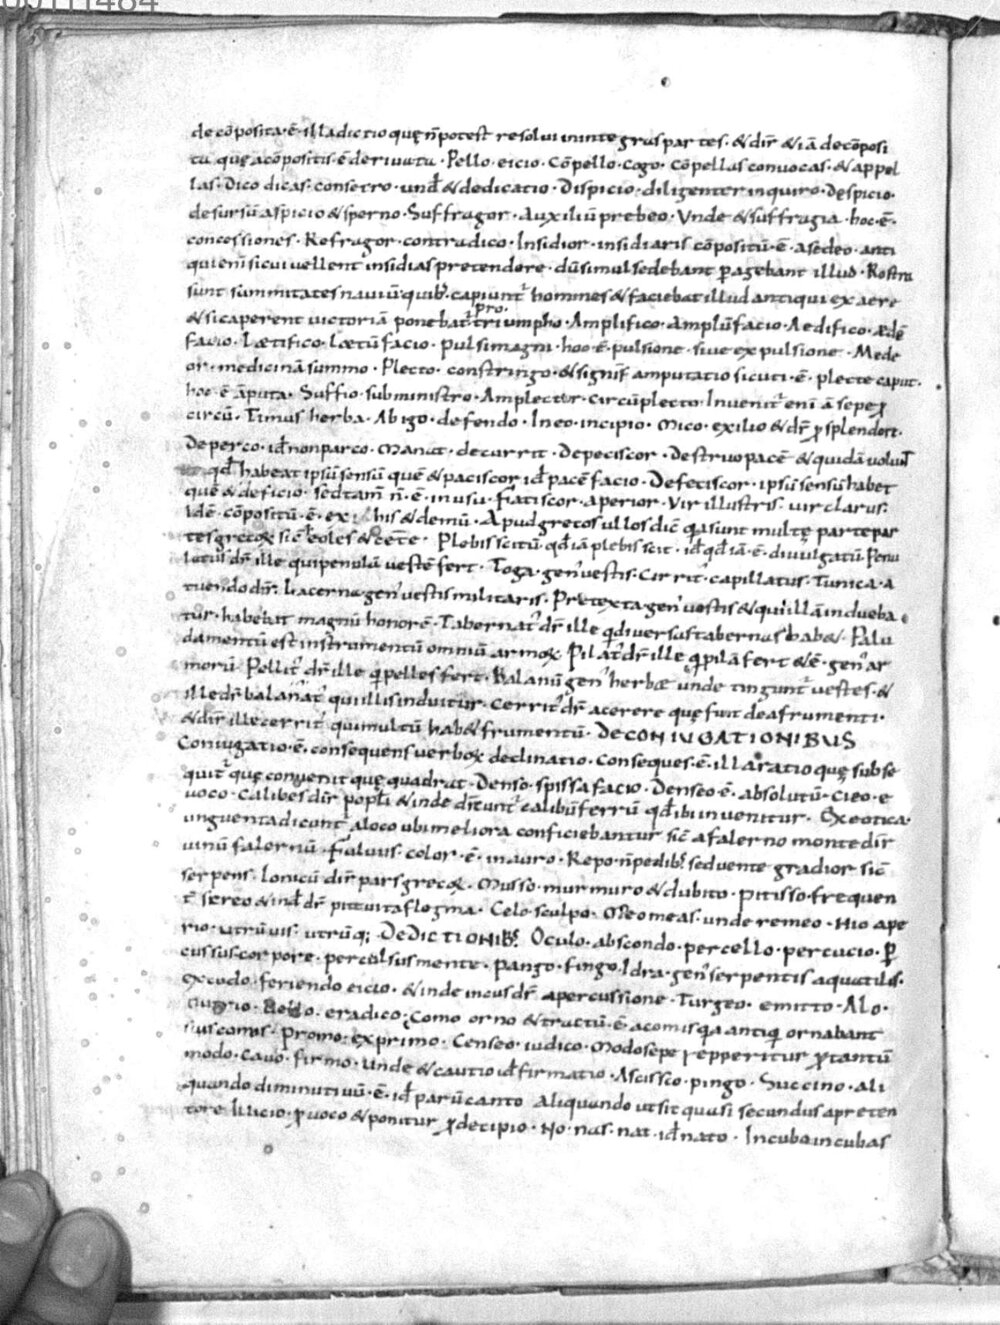 decōposita·ē·illadictio quę n̄potest resolui inintegras partes·&dir̄ &iā decōposi
ta quę acōpositis·ēderiuata·Pello·eicio·Cōpello·cogo·Cōpellas conuocas·&appel
las·Dico dicas·consecro·und̄ &dedicatio·Dispicio·diligenter inquiro·Despicio·
desursū aspicio &sperno·Suffragor·Auxiliū prebeo·Vnde &suffragia·hoc·ē·
concessiones·Refragor·contradico·Insidior·insidiaris cōpositū·ē·asedeo·anti
qui enī sicui uellent insidias pretendere·dūsimul sedebant ꝑagebant illud·Rostra
sunt summitates nauiū quib; capiunt̄ homines &faciebat illud antiqui ex aere
&si caperent uictoriā ponebat̄ pro triumpho·Amplifico·amplū facio·Aedifico·ædē
facio·Lætifico·lætū facio·pulsimagni·hoc·ē·pulsione·siue expulsione·Mede
or·medicinā summo·Plecto·constringo·&signif̄ amputatio sicuti·ē·plecte caput·
hoc·ē āputa·Suffio·subministro·Amplector·circūplecto·Inuenit̄ enī ā sepe ꝓ
circū·Timus herba·Abigo·defendo·Ineo·incipio·Mico·exilio &dr̄ ꝓ splendore·
Deperco·id̄ nonparco·Manat·decurrit·Depeciscor·Destruo pacē &quidā uoluNT
qd̄ habeat ipsū sensū quē &paciscor id̄ pacē facio·Defetiscor·ipsū sensū habet
quē &deficio·sed tam̄ n̄·ē·in usu·fatiscor·aperior·Vir illustris·uir clarus·
Idē·cōpositū·ē·ex his &demū·Apud grecos ullos dic̄ qa sunt multę parte par
tes grecoꝝ sic̄ eoles &cete·Plebis scitū·qd̄ iā plebis scit·id̄ qd̄ iā·ē·diuulgatū Penu
latus dr̄ ille qui penulā uestē fert·Toga·gen' uestis·Cirrit'·capillatus·Tunica·a
tuendo dr̄·Lacerna gen' uestis militaris·Pretexta gen' uestis &qui illā indueba
tur·habebat magnū honorē·Tabernat' dr̄ ille q diuersus tabernas hab&·Palu
damentū est instrumentū omniū armoꝝ·Pilat' dr̄ ille q pilā fert &ē·gen' ar
morū·Pellit' dr̄ ille q pelles fert·Balanū gen' herbæ unde tingunt̄ uestes·&
ille dr̄ balanat' qui illis induitur·Cerrit' dr̄ acerere quę sunt dea frumenti·
&dir̄ ille cerrit' qui multū hab& frumentū·DeCONIUGATIONIBUS
Coniugatio·ē·consequens uerboꝝ declinatio·Conseques·ē·illa ratio quę subse
quit̄ quę conuenit quę quadrat·Denso·spissa facio·Denseo·ē·absolutū·Cieo·e
uoco·calibes dir̄ popli &inde dicunt̄ calibū ferrū qd̄ ibi inuenitur·Exeotica·
unguenta dicunt̄ aloco ubi meliora conficiebantur sic̄ afalerno monte dir̄
uinū falernū·Fuluus·color·ē·inauro·Repo·n̄pedib; sed uente gradior sic̄
serpens·Ionicū dir̄ pars grecoꝝ·Musso·murmuro &dubito·Pitisso·frequen
t̄ screo &ind̄ dr̄ pituita flogma·Celo·sculpo·Meo meas·unde remeo·Hio ape
rio·utrūuis·utrūq;·DeDICTIONIB;·Oculo·abscondo·percello·percucio·ꝑ
cussus corpore·perculsus mente·Pango·fingo·Idra·gen' serpentis aquatilis·
Excudo·feriendo eicio·&inde incus dr̄ apercussione·Turgeo·emitto·Alo·
nutrio·Rello·eradico·Como orno &tractū·ē acomis qa antiq ornabant
suas comas·Promo·exprimo·Censeo·iudico·Modo sepe repperitur ꝓ tantū
modo·Cauo·firmo·unde &cautio id̄ firmatio·Ascisco·pingo·Succino·ali
quando diminutiuū·ē·id̄ parū canto Aliquando ut sit quasi secundus apreten
tore·Illicio·ꝓuoco &ponitur ꝓ decipio·No·nas·nat·id̄ nato·Incubo incubas